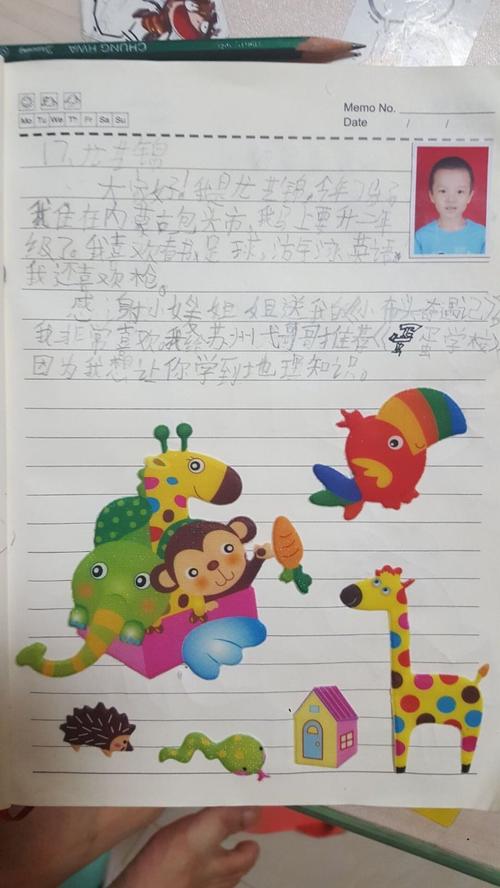 CHUNG HWA
Memo No.
Mo Tu We Th Fr Sa Su
Date / /
17、尤艺锦
大家好!我是尤艺锦,今年7岁了
我住在内蒙古包头市,我马上要升二年
级了。我喜欢看书,足球,游泳,英语。
我还喜欢枪。
感谢小姓姐姐送我的《小布头奇遇记》。
我非常喜欢。我给苏州弋哥哥推荐《蛋学校》
因为我想让你学到地理知识。